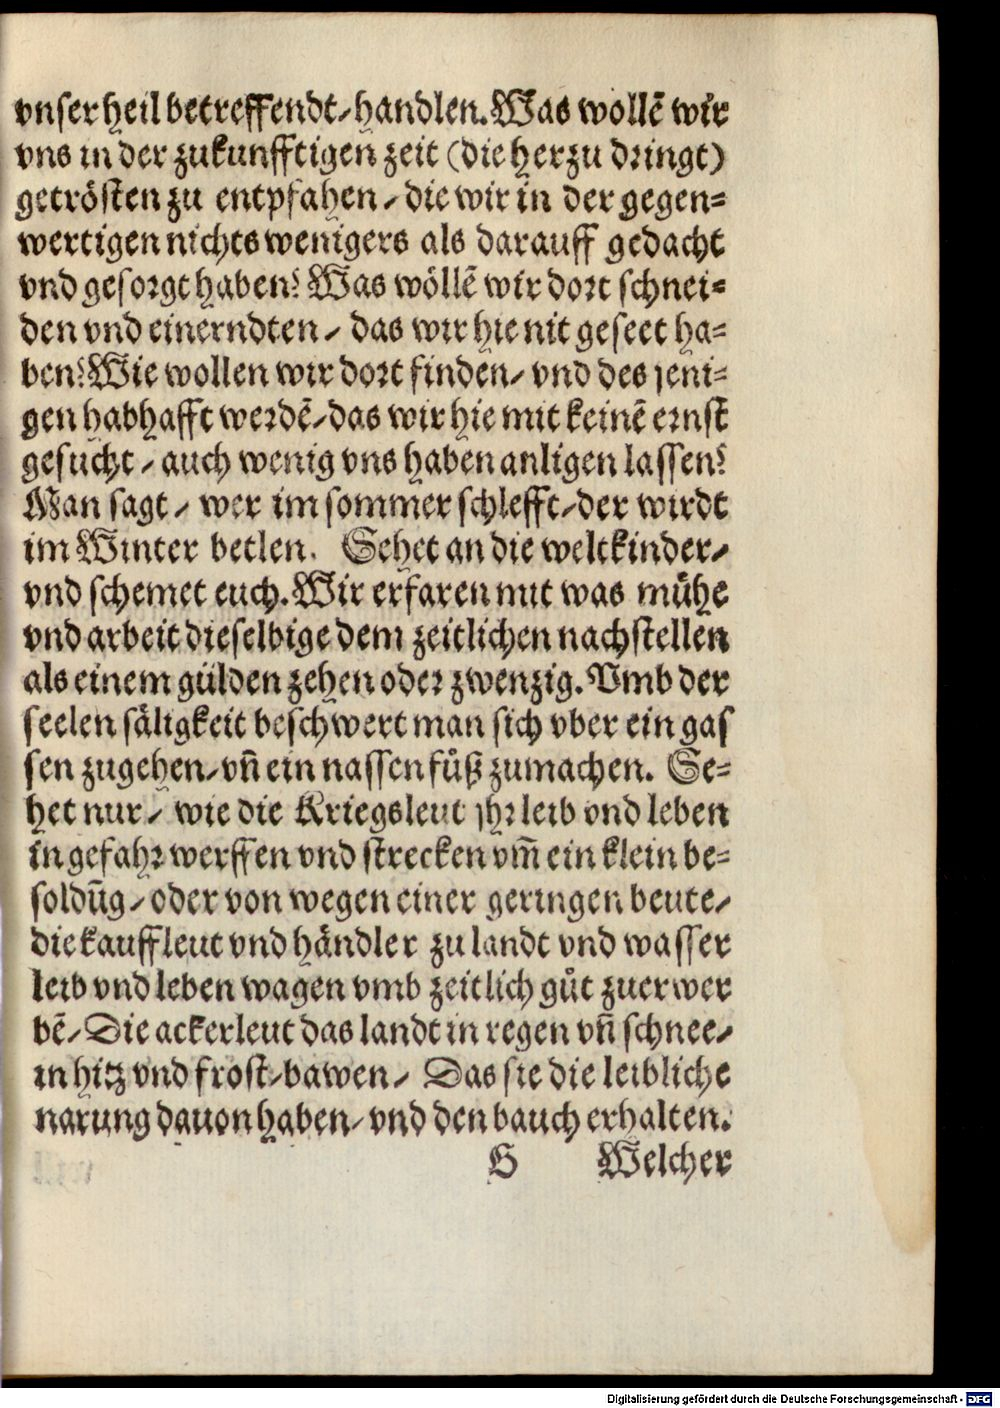 vnser heil betreffendt / handlen. Was wollē wir
vns in der zukunfftigen zeit (die herzu dringt)
getrösten zu entpfahen / die wir in der gegen=
wertigen nichts wenigers als darauff gedacht
vnd gesorgt haben? Was wöllē wir dort schnei=
den vnd einerndten / das wir hie nit geseet ha=
ben? Wie wollen wir dort finden / vnd des jeni=
gen habhafft werdē / das wir hie mit keinē ernst
gesucht / auch wenig vns haben anligen lassen?
Man sagt / wer im sommer schlefft / der wirdt
im Winter betlen. Sehet an die weltkinder /
vnd schemet euch. Wir erfaren mit was mühe
vnd arbeit dieselbige dem zeitlichen nachstellen
als einem gülden zehen oder zwenzig. Vmb der
seelen säligkeit beschwert man sich vber ein gas
sen zugehen / vñ ein nassen fůß zumachen. Se=
het nur / wie die Kriegsleut jhr leib vnd leben
in gefahr werffen vnd strecken vm̄ ein klein be=
soldūg / oder von wegen einer geringen beute /
die kauffleut vnd händler zu landt vnd wasser
leib vnd leben wagen vmb zeitlich gůt zuerwer
bē / Die ackerleut das landt in regen vñ schnee /
in hitz vnd frost / bawen / Das sie die leibliche
narung dauon haben / vnd den bauch erhalten.
S Welcher
Digitalisierung gefördert durch die Deutsche Forschungsgemeinschaft - DFG